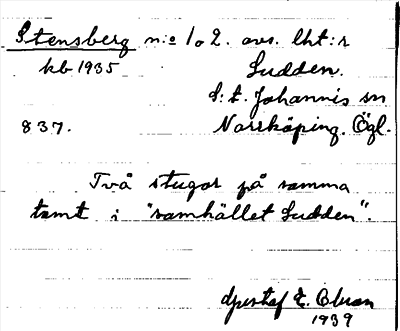 Stensberg n:o 1 o 2. avs. lht:r
kb 1935 Sudden.
S:t. Johannis sn
837. Norrköping. Ögl.
Två stugor på samma
tomt i "samhället Sudden".
Gustaf E. Olson
1939